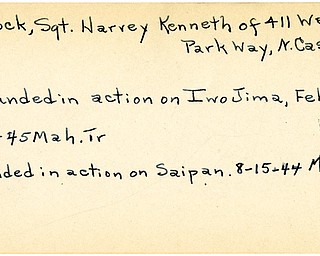 ock, Sgt. Harvey Kenneth of 411 We
Park Way, N. Cas
unded in action on Iwo Jima, Feb
-45 Mah. Tr
nded in action on Saipan. 8-15-44 M